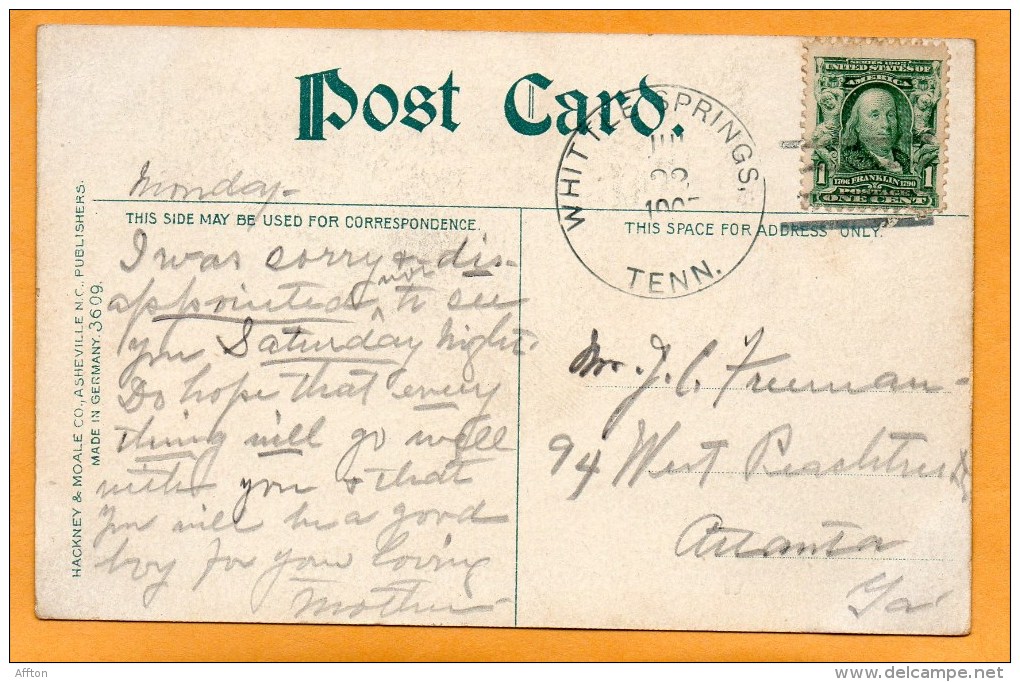 Post Card.
WHITTLE SPRINGS,
22
TENN.
SERIES 1902
UNITED STATES OF
AMERICA
1706 FRANKLIN 1790
1 POSTAGE 1
ONE CENT
Monday-
THIS SIDE MAY BE USED FOR CORRESPONDENCE.
THIS SPACE FOR ADDRESS ONLY.
I was sorry & dis-
appointed not to see
you Saturday Night.
Do hope that every
thing will go well
with you & that
You will be a good
boy for your loving
Mother-
Mr. J. C. Freeman-
94 West Peachtree
Atlanta
Ga
HACKNEY & MOALE CO., ASHEVILLE N.C., PUBLISHERS.
MADE IN GERMANY. 3609.
Affton
www.delcampe.net